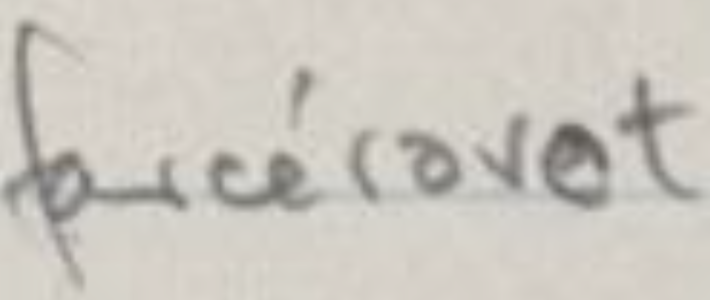 farcérovat